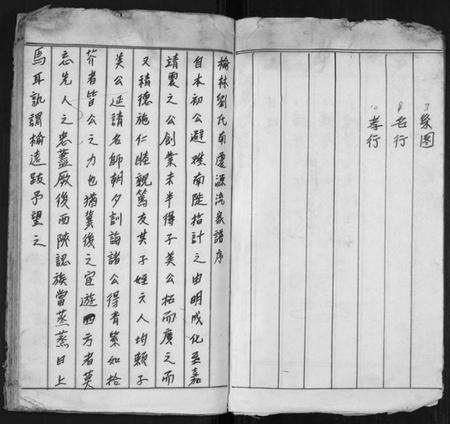 3 系圖
8 名行
10 孝行
榆林劉氏南慶源流家譜序
自本初公避難南陡指計之由明成化至嘉
靖雲之公創業未半得子美公拓而廣之而
又積德施仁睦親篤友其子姪文人均賴子
美公延請名師朝夕訓誨諸公得青紫如拾
芥者皆公之力也猶冀後之宦遊西方者莫
忘先人之忠藎厥後西陝認族當蒸蒸日上
焉耳訊謂榆遠跋予望之